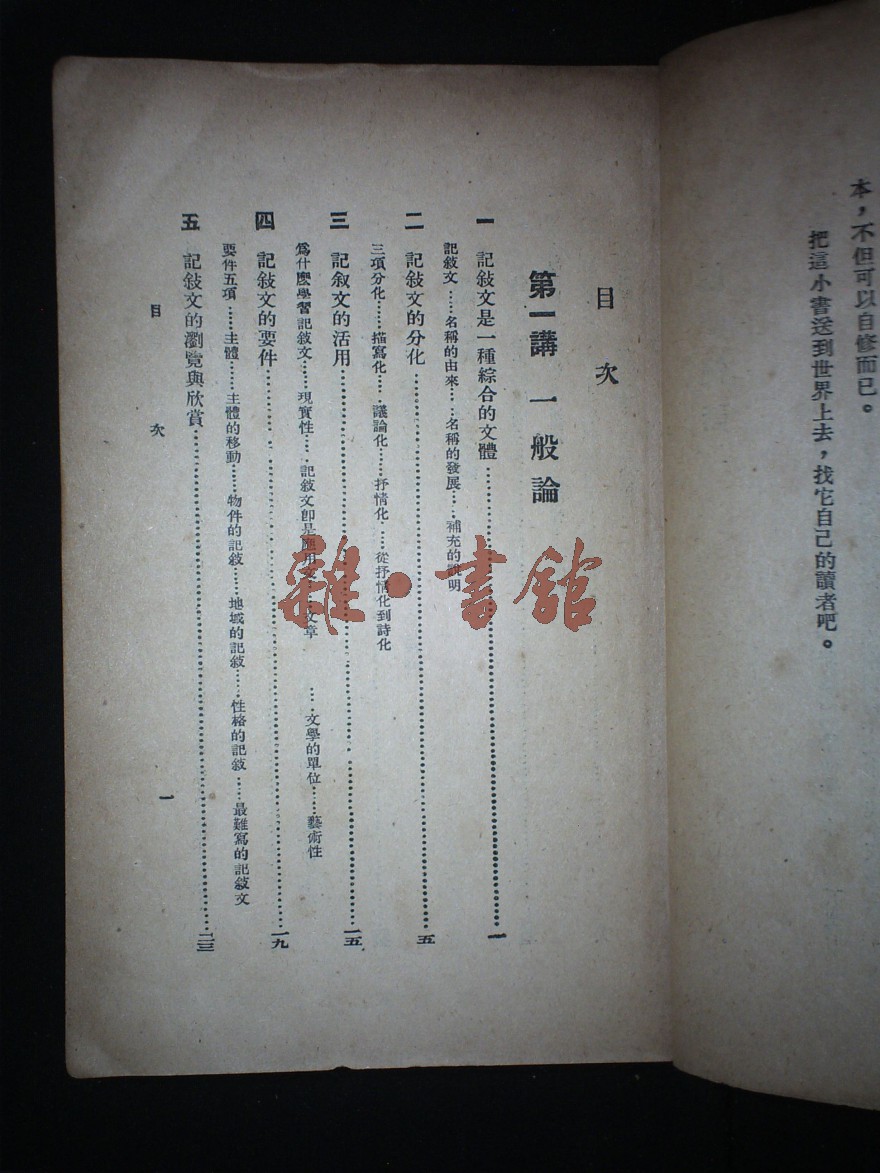 本，不但可以自修而已。
把這小書送到世界上去，找它自己的讀者吧。
目次
第一講 一般論
一 記敍文是一種綜合的文體……一
記敍文……名稱的由來……名稱的發展……補充的說明
二 記敍文的分化……五
三項分化……描寫化……議論化……抒情化……從抒情化到詩化
三 記叙文的活用……一五
爲什麽學習記敍文……現實性……記敍文卽是應用文……文章……文學的單位……藝術性
四 記敍文的要件……一九
要件五項……主體……主體的移動……物件的記敍……地域的記敍……性格的記敍……最難寫的記敍文
五 記敍文的瀏覽與欣賞……二三
目次 一
雜·書館